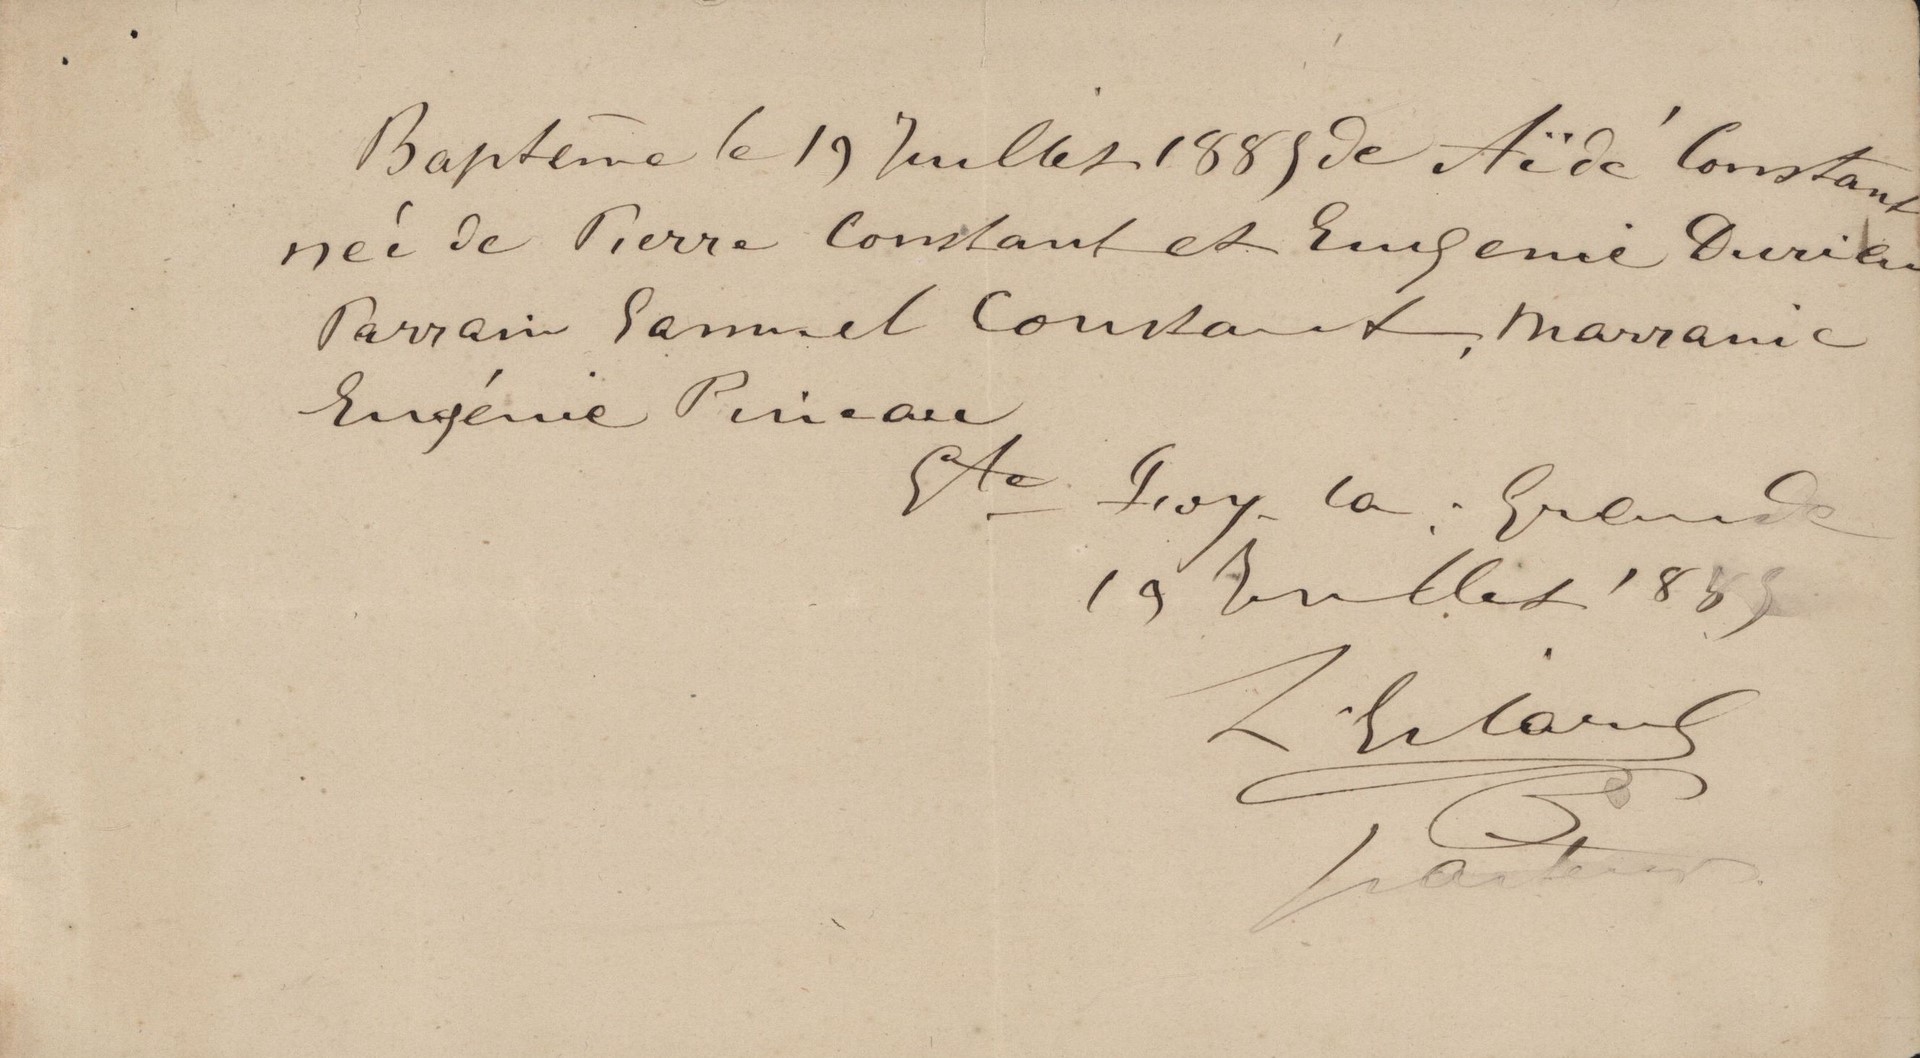 Baptême le 19 Juillet 1885 de Aïdé Constant
née de Pierre Constant et Eugenie Durieu
Parrain Samuel Constant, Marraine
Eugénie Pineau
Ste Foy-la-Grande
19 Juillet 1885
pasteur